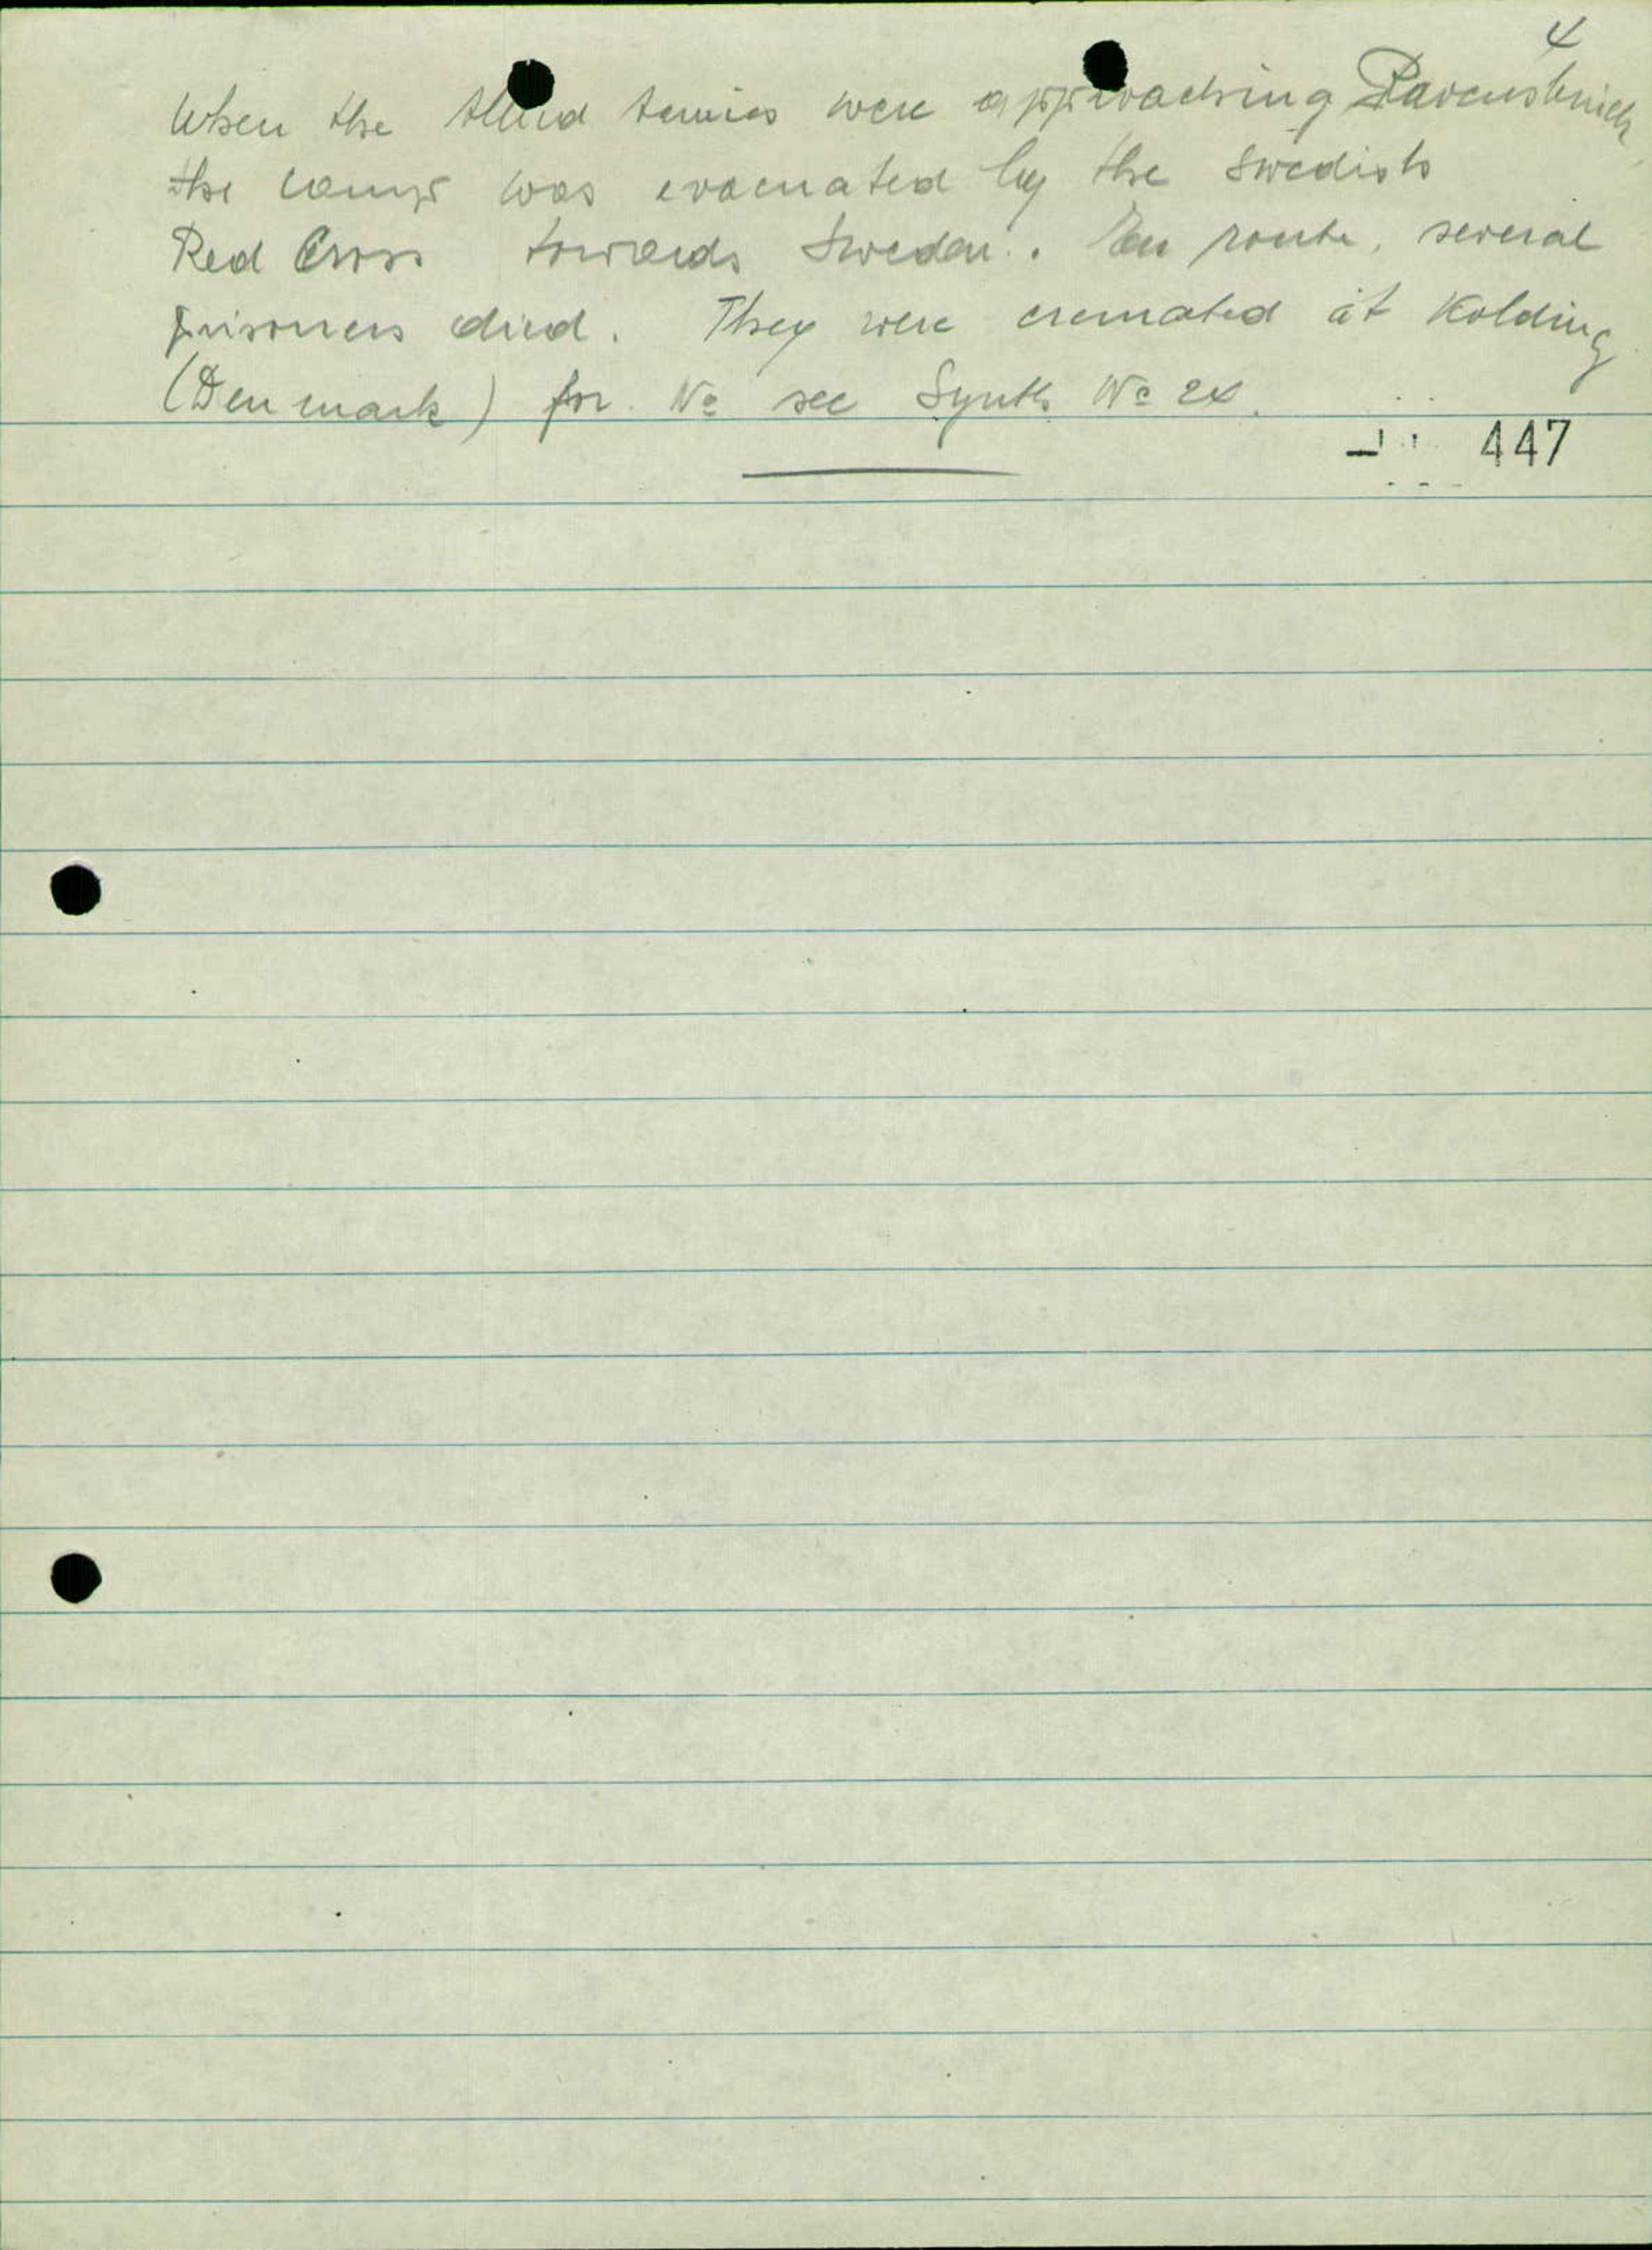 4
When the Allied Armies were approaching Ravensbrück
the camp was evacuated by the Swedish
Red Cross towards Sweden. En route, several
prisoners died. They were cremated at Kolding
(Denmark) for No see Synth No
447